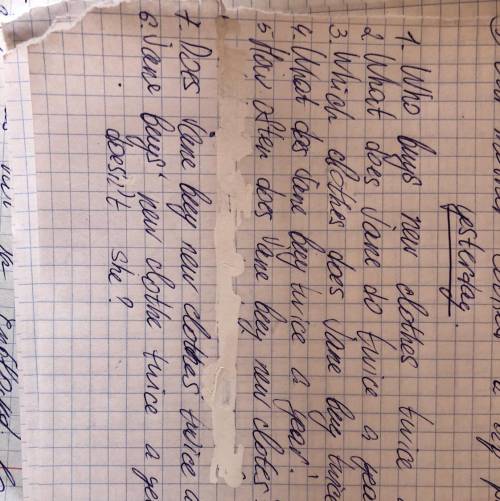 yesterday.
1. Who buys new clothes twice a
2. What does Jane do twice a yea
3. Which clothes does Jane buy twice
4. What does Jane buy twice a year?
5. How often does Jane buy new clotes
7. Does Jane buy new clothes twice a
6. Jane buys new clothe twice a yea
doesn't she?